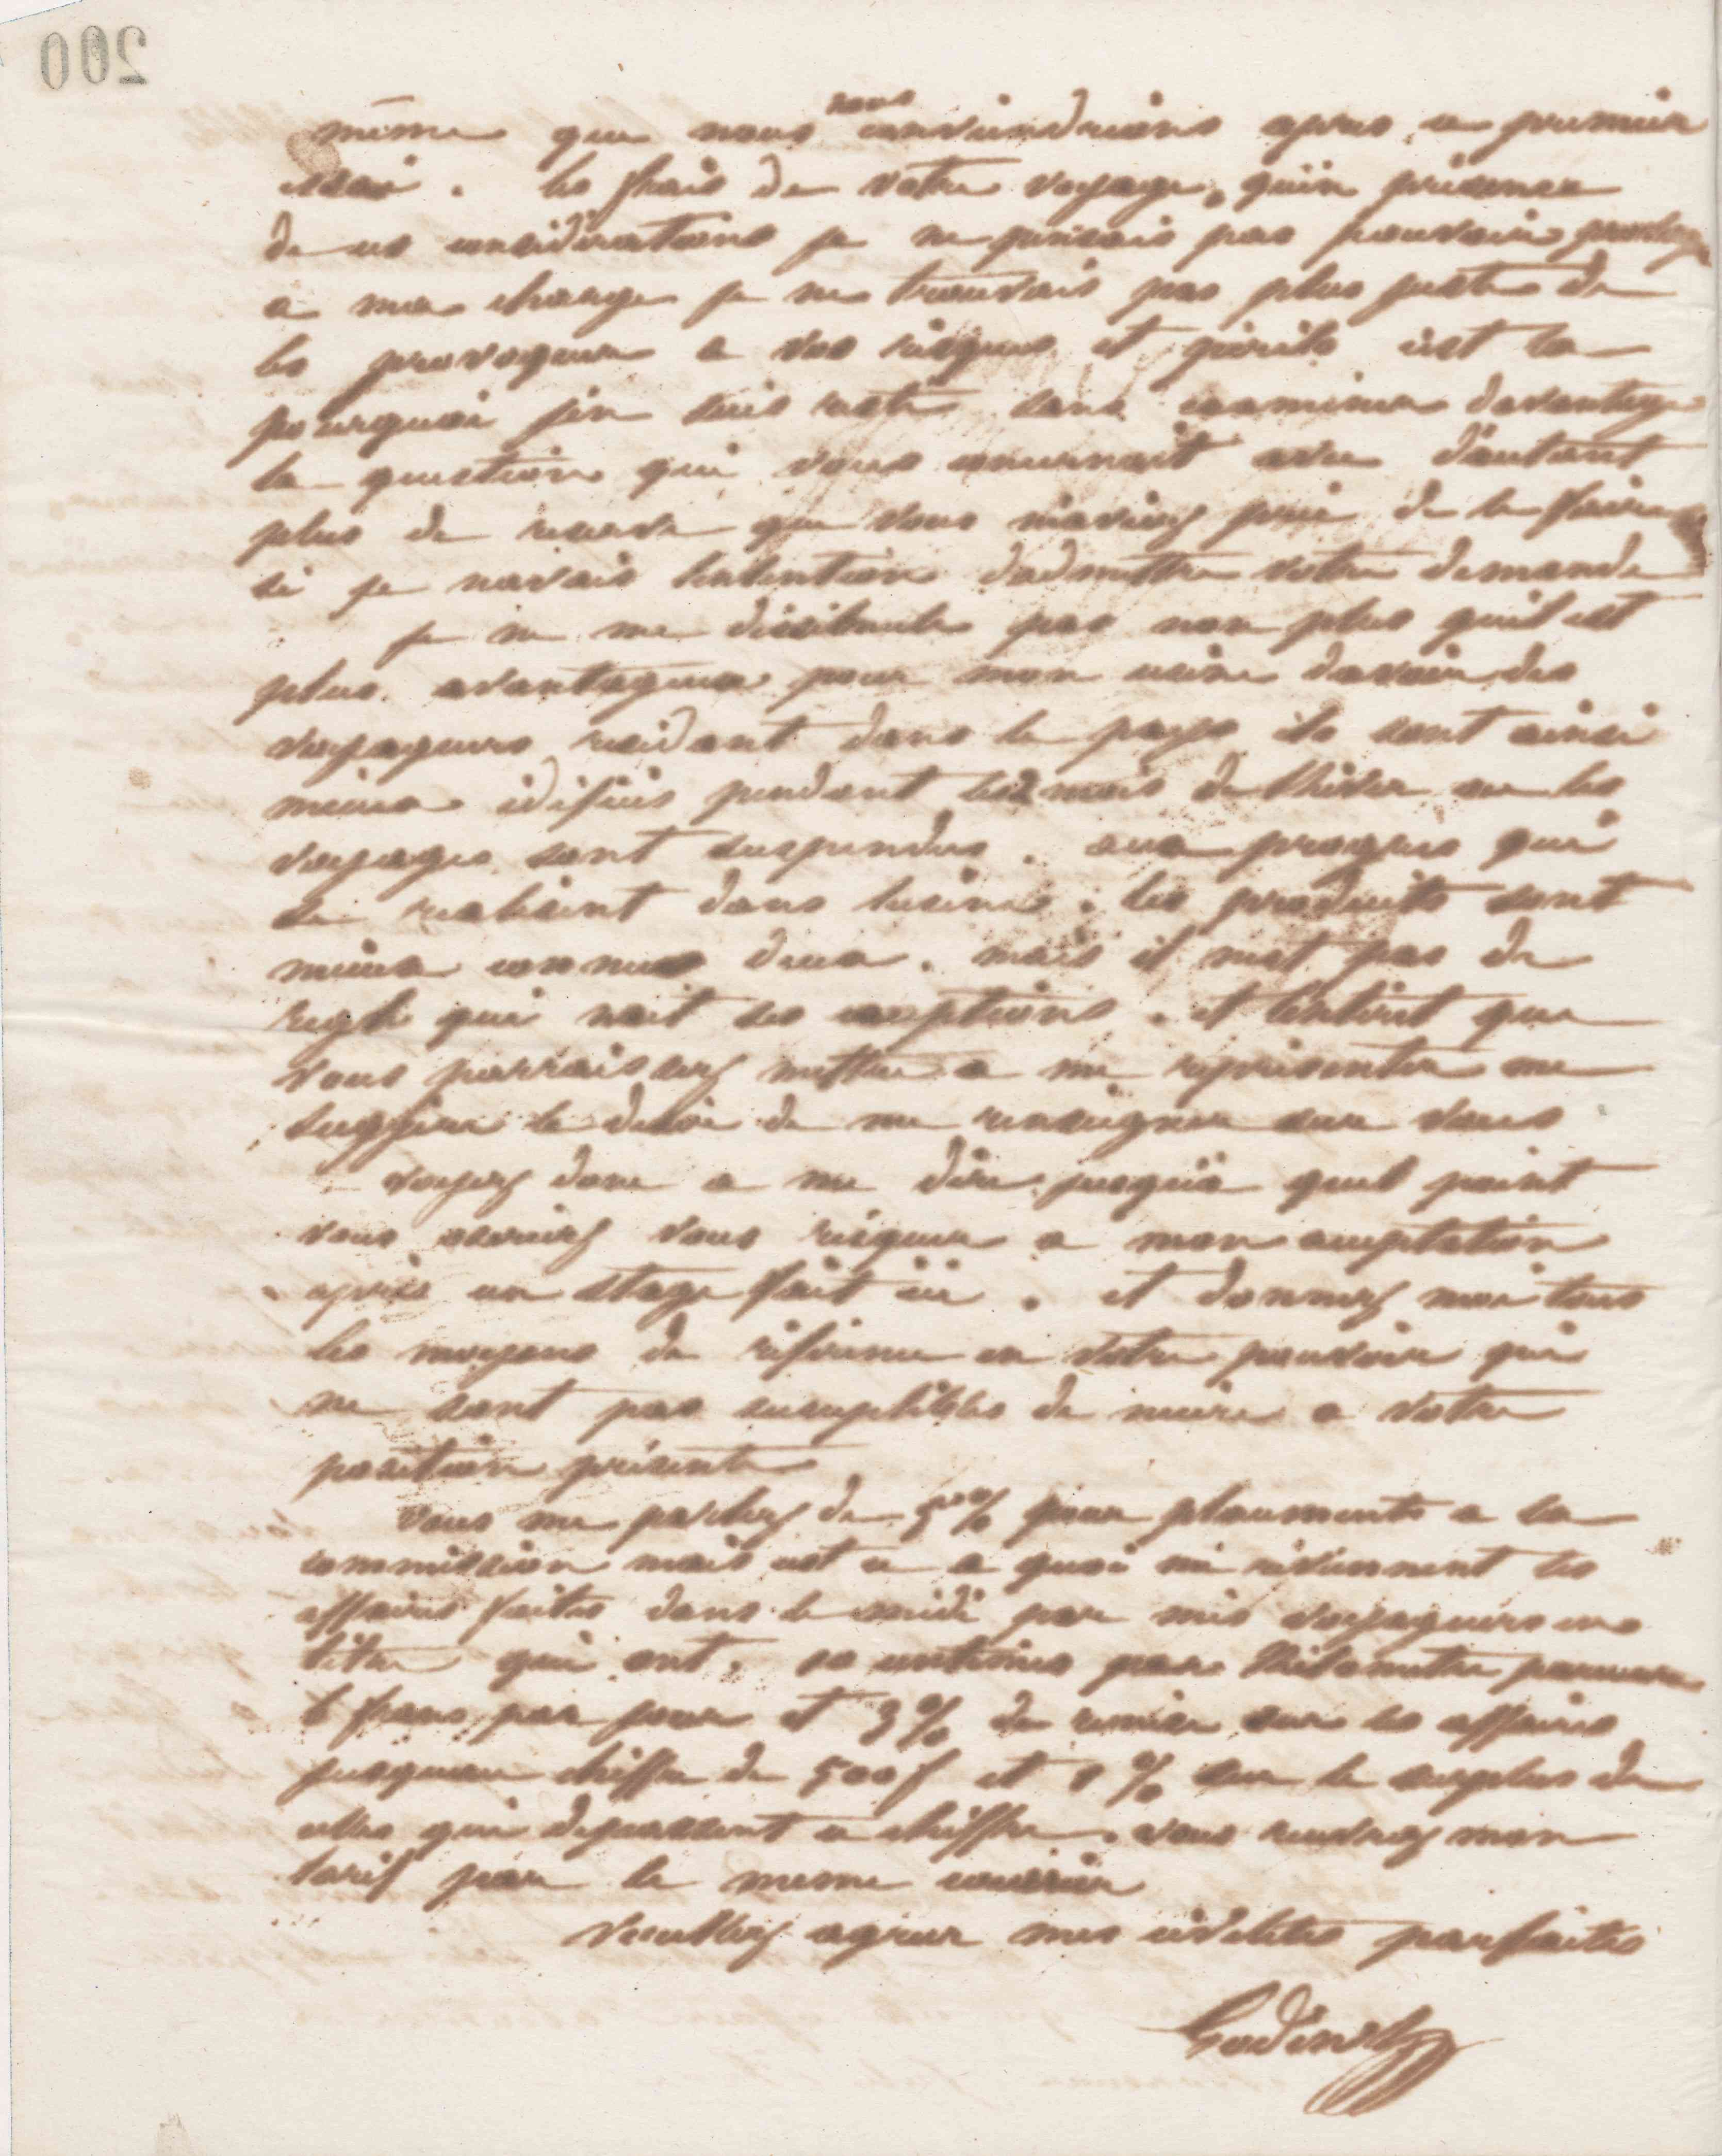 200
même que nous nous conviendrions apres ce premier
essai . les frais de votre voyage, qu'en présence
de ces considérations je ne pensais pas pouvoir prendre
a ma charge je ne trouvais pas plus juste de
les provoquer a vos risques et périls c'est la
pourquoi j'en suis resté sans examiner davantage
la question qui vous concernait avec d'autant
plus de reserve que vous m'aviez prié de le faire
si je navais lintention dadmettre votre demande
je ne me dissimule pas non plus quil est
plus avantageux pour mon usine davoir des
voyageurs residant dans le pays ils sont ainsi
mieux édifiés pendant les 2 mois de lhiver ou les
voyages sont suspendus . aux progres qui
se realisent dans lusine . les produits sont
mieux connus deux . mais il nest pas de
regle qui nait ses exceptions . et lintéret que
vous parraissez mettre a me représenter me
suggère le desir de me renseigner sur vous
voyez donc a me dire jusqu'à quel point
vous oseriez vous risquer a mon acceptation
après un stage fait ici . et donnez moi tous
les moyens de référence en votre pouvoir qui
ne sont pas susceptibles de nuire a votre
position présente
vous me parlez de 5% pour placements a la
commission mais cest ce a quoi me reviennent les
affaires faites dans le midi par mes voyageurs en
titre qui ont . 10 centimes par kilometre parcouru
6 francs par jour et 3% de remise sur les affaires
jusquau chiffre de 500f et 1% sur le surplus de
celles qui depassent ce chiffre . vous recevrez mon
tarif par le meme courrier
Veuillez agreer mes civilités parfaites
Godin